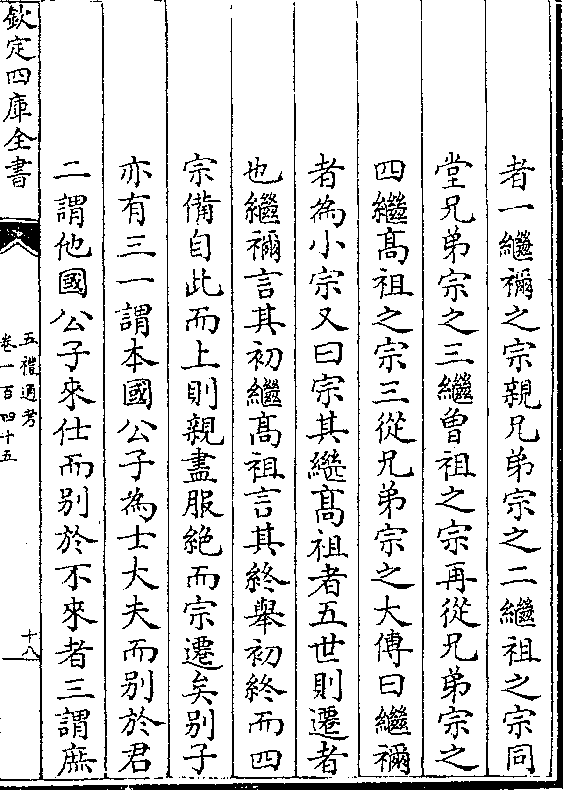 者一繼禰之宗親兄弟宗之二繼祖之宗同
堂兄弟宗之三繼曾祖之宗再從兄弟宗之
四繼髙祖之宗三從兄弟宗之大傳曰繼禰
者為小宗又曰宗其繼髙祖者五世則遷者
也繼禰言其初繼髙祖言其終舉初終而四
宗備自此而上則親盡服絶而宗遷矣别子
亦有三一謂本國公子為士大夫而别於君
二謂他國公子來仕而别於不來者三謂庶
欽定四庫全書
五禮通考
卷一百四十五
十八